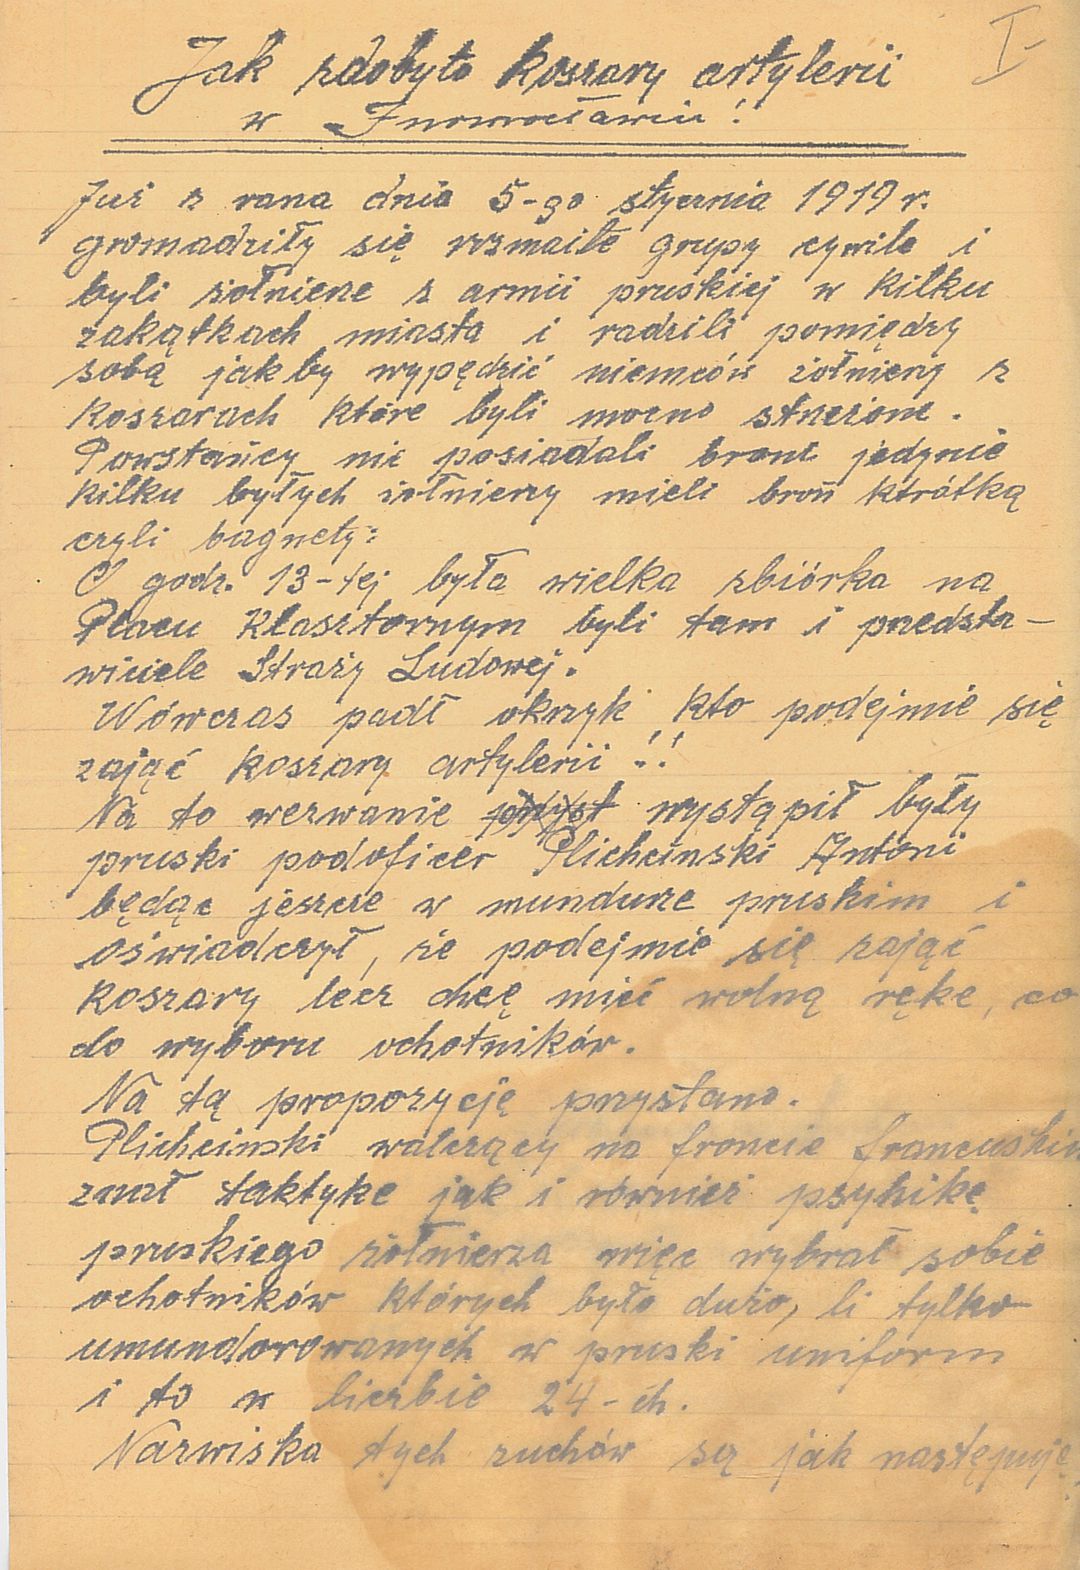 I-
Jak zdobyto koszary artylerii
w Inowrocławiu!
Już z rana dnia 5-go stycznia 1919 r.
gromadziły się rozmaite grupy cywile i
byli żołnierze z armii pruskiej w kilku
zakątkach miasta i radzili pomiędzy
sobą jakby wypędzić niemców żołnierzy z
koszarach które byli mocno strzeżone.
Powstańcy nie posiadali broni jedynie
kilku byłych żołnierzy mieli broń krótką
czyli bagnety:
O godz. 13-tej była wielka zbiórka na
Placu Klasztornym byli tam i przedsta-
wiciele Straży Ludowej.
Wówczas padł okrzyk kto podejmie się
zająć koszary artylerii!!
Na to wezwanie wystąpił były
pruski podoficer Plichciński Antoni
będąc jeszcze w mundurze pruskim i
oświadczył, że podejmie się zająć
koszary lecz chcę mieć wolną rękę, co
do wyboru ochotników.
Na tą propozycję przystano.
Plichcinski walczący na froncie francuskim
znał taktykę jak i również psyhikę
pruskiego żołnierza więc wybrał sobie
ochotników których było dużo, li tylko
umundorowanych w pruski uniform
i to w liczbie 24-ch.
Nazwiska tych zuchów są jak następuję: